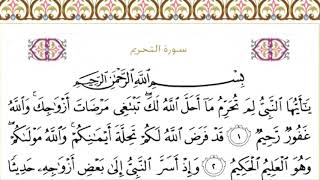 سورة التحريم
بِسْمِ ٱللَّهِ ٱلرَّحْمَٰنِ ٱلرَّحِيمِ
يَٰٓأَيُّهَا ٱلنَّبِىُّ لِمَ تُحَرِّمُ مَآ أَحَلَّ ٱللَّهُ لَكَ ۖ تَبْتَغِى مَرْضَاتَ أَزْوَٰجِكَ ۚ وَٱللَّهُ
غَفُورٌ رَّحِيمٌ ١ قَدْ فَرَضَ ٱللَّهُ لَكُمْ تَحِلَّةَ أَيْمَٰنِكُمْ ۚ وَٱللَّهُ مَوْلَىٰكُمْ ۖ
وَهُوَ ٱلْعَلِيمُ ٱلْحَكِيمُ ٢ وَإِذْ أَسَرَّ ٱلنَّبِىُّ إِلَىٰ بَعْضِ أَزْوَٰجِهِۦ حَدِيثًا